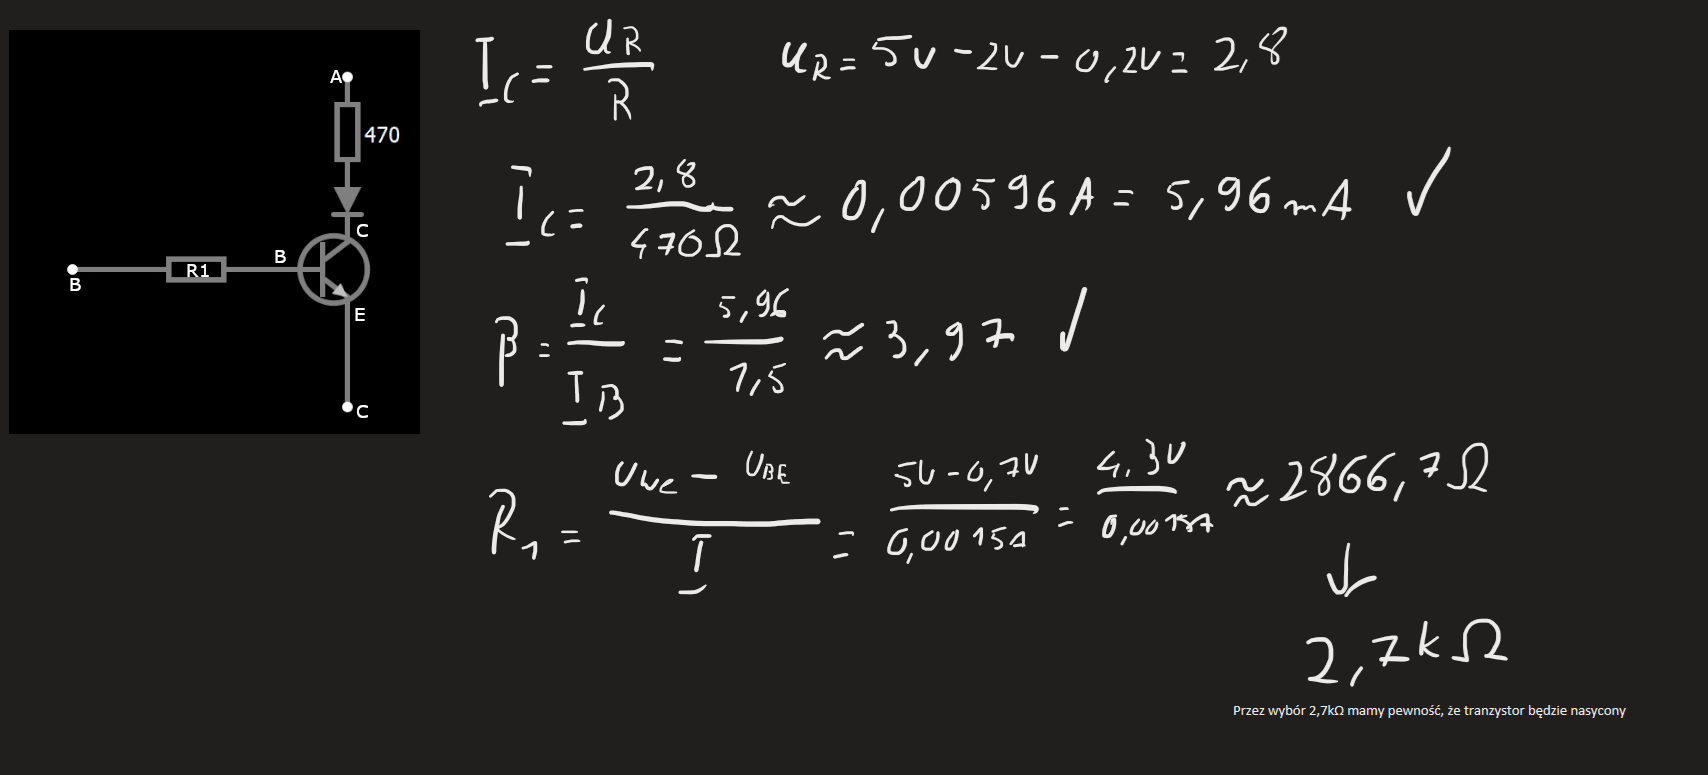 A
470
C
B
R1
B
E
C
I_C = U_R / R
U_R = 5V - 2V - 0,2V = 2,8
I_C = 2,8 / 470Ω ≈ 0,00596A = 5,96mA ✓
β = I_C / I_B = 5,96 / 1,5 ≈ 3,97 ✓
R_1 = (U_we - U_BE) / I = (5V - 0,7V) / 0,0015A = 4,3V / 0,0015A ≈ 2866,7Ω
↓
2,7kΩ
Przez wybór 2,7kΩ mamy pewność, że tranzystor będzie nasycony